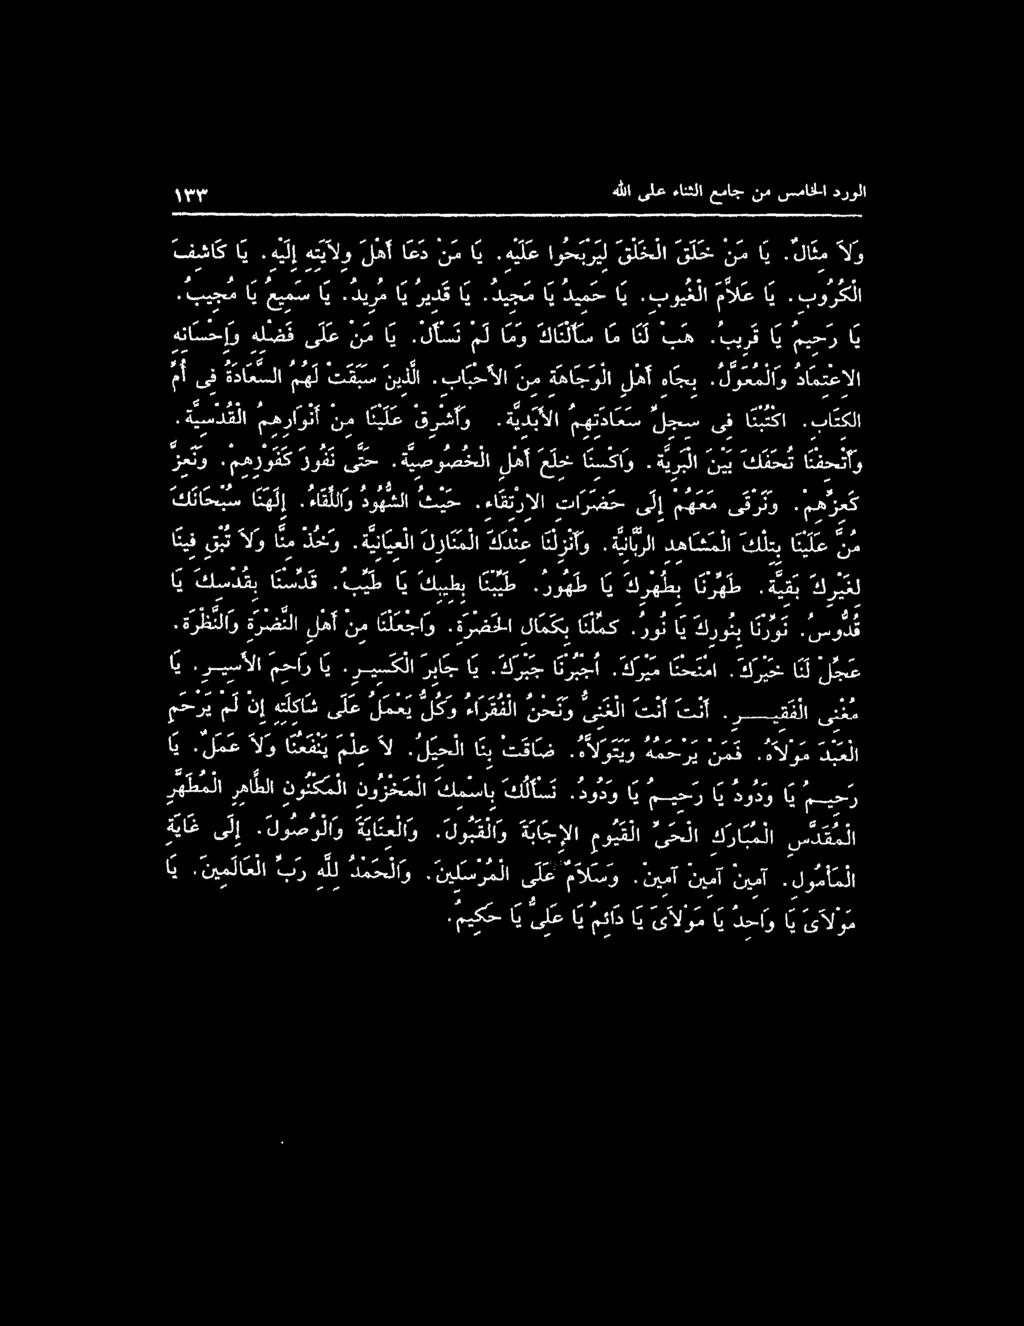 الورد الخامس من جامع الثناء على الله ١٣٣
وَلاَ مِثَالٌ. يَا مَنْ خَلَقَ الْخَلْقَ لِيَرْبَحُوا عَلَيْهِ. يَا مَنْ دَعَا أَهْلَ وِلاَيَتِهِ إِلَيْهِ. يَا كَاشِفَ
الْكُرُوبِ. يَا عَلاَّمَ الْغُيُوبِ. يَا حَمِيدُ يَا مَجِيدُ. يَا قَدِيرُ يَا مُرِيدُ. يَا سَمِيعُ يَا مُجِيبُ.
يَا رَحِيمُ يَا قَرِيبُ. هَبْ لَنَا مَا سَأَلْنَاكَ وَمَا لَمْ نَسْأَلْ. يَا مَنْ عَلَى فَضْلِهِ وَإِحْسَانِهِ
الاِعْتِمَادُ وَالْمُعَوَّلُ. بِجَاهِ أَهْلِ الْوَجَاهَةِ مِنَ الأَحْبَابِ. الَّذِينَ سَبَقَتْ لَهُمُ السَّعَادَةُ فِى أُمِّ
الكِتَابِ. اكْتُبْنَا فِى سِجِلِّ سَعَادَتِهِمُ الأَبَدِيَّةِ. وَأَشْرِقْ عَلَيْنَا مِنْ أَنْوَارِهِمُ الْقُدْسِيَّةِ.
وَأَتْحِفْنَا تُحَفَكَ بَيْنَ الْبَرِيَّةِ. وَاكْسِنَا خِلَعَ أَهْلِ الْخُصُوصِيَّةِ. حَتَّى نَفُوزَ كَفَوْزِهِمْ. وَنَعِزَّ
كَعِزِّهِمْ. وَنَرْقَى مَعَهُمْ إِلَى حَضَرَاتِ الاِرْتِقَاءِ. حَيْثُ الشُّهُودُ وَاللِّقَاءُ. إِلَهَنَا سُبْحَانَكَ
مُنَّ عَلَيْنَا بِتِلْكَ الْمَشَاهِدِ الرَّبَّانِيَّةِ. وَأَنْزِلْنَا عِنْدَكَ الْمَنَازِلَ الْعِيَانِيَّةَ. وَخُذْ مِنَّا وَلاَ تُبْقِ فِينَا
لِغَيْرِكَ بَقِيَّةً. طَهِّرْنَا بِطُهْرِكَ يَا طَهُورُ. طَيِّبْنَا بِطِيبِكَ يَا طَيِّبُ. قَدِّسْنَا بِقُدْسِكَ يَا
قُدُّوسُ. نَوِّرْنَا بِنُورِكَ يَا نُورُ. كَمِّلْنَا بِكَمَالِ الْحَضْرَةِ. وَاجْعَلْنَا مِنْ أَهْلِ النَّضْرَةِ وَالنَّظْرَةِ.
عَجِّلْ لَنَا خَيْرَكَ. امْنَحْنَا مَيْرَكَ. أُجْبُرْنَا جَبْرَكَ. يَا جَابِرَ الْكَسِيرِ. يَا رَاحِمَ الأَسِيرِ. يَا
مُغْنِى الْفَقِيرِ. أَنْتَ أَنْتَ الْغَنِىُّ وَنَحْنُ الْفُقَرَاءُ وَكُلٌّ يَعْمَلُ عَلَى شَاكِلَتِهِ إِنْ لَمْ يَرْحَمِ
الْعَبْدَ مَوْلاَهُ. فَمَنْ يَرْحَمُهُ وَيَتَوَلاَّهُ. ضَاقَتْ بِنَا الْحِيَلُ. لاَ عِلْمَ يَنْفَعُنَا وَلاَ عَمَلٌ. يَا
رَحِيمُ يَا وَدُودُ يَا رَحِيمُ يَا وَدُودُ. نَسْأَلُكَ بِاسْمِكَ الْمَخْزُونِ الْمَكْنُونِ الطَّاهِرِ الْمُطَهَّرِ
الْمُقَدَّسِ الْمُبَارَكِ الْحَىِّ الْقَيُّومِ الإِجَابَةَ وَالْقَبُولَ. وَالْعِنَايَةَ وَالْوُصُولَ. إِلَى غَايَةِ
الْمَأْمُولِ. آمِينْ آمِينْ آمِينْ. وَسَلاَمٌ عَلَى الْمُرْسَلِينَ. وَالْحَمْدُ لِلَّهِ رَبِّ الْعَالَمِينَ. يَا
مَوْلاَىَ يَا وَاحِدُ يَا مَوْلاَىَ يَا دَائِمُ يَا عَلِىُّ يَا حَكِيمُ.